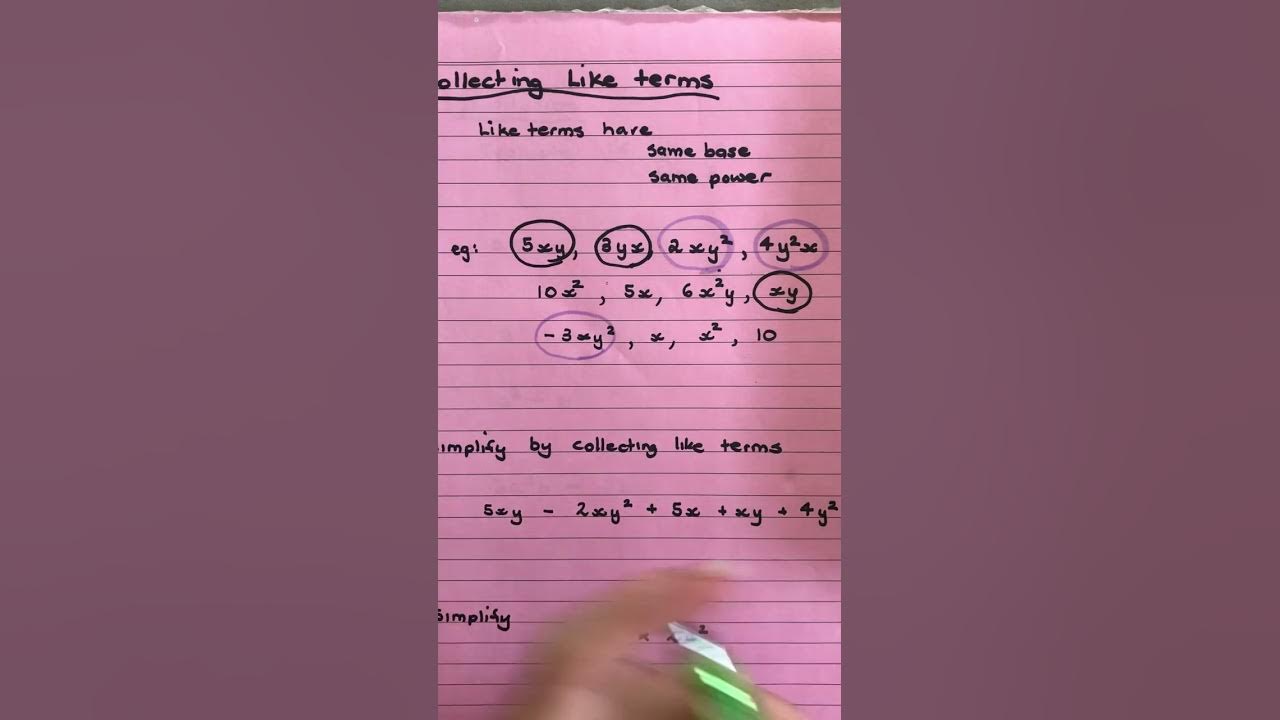 ollecting Like terms
Like terms have
same base
same power
eg: 5xy, 3yx, 2xy², 4y²x
10x², 5x, 6x²y, xy
-3xy², x, x², 10
implify by collecting like terms
5xy - 2xy² + 5x + xy + 4y²
Simplify